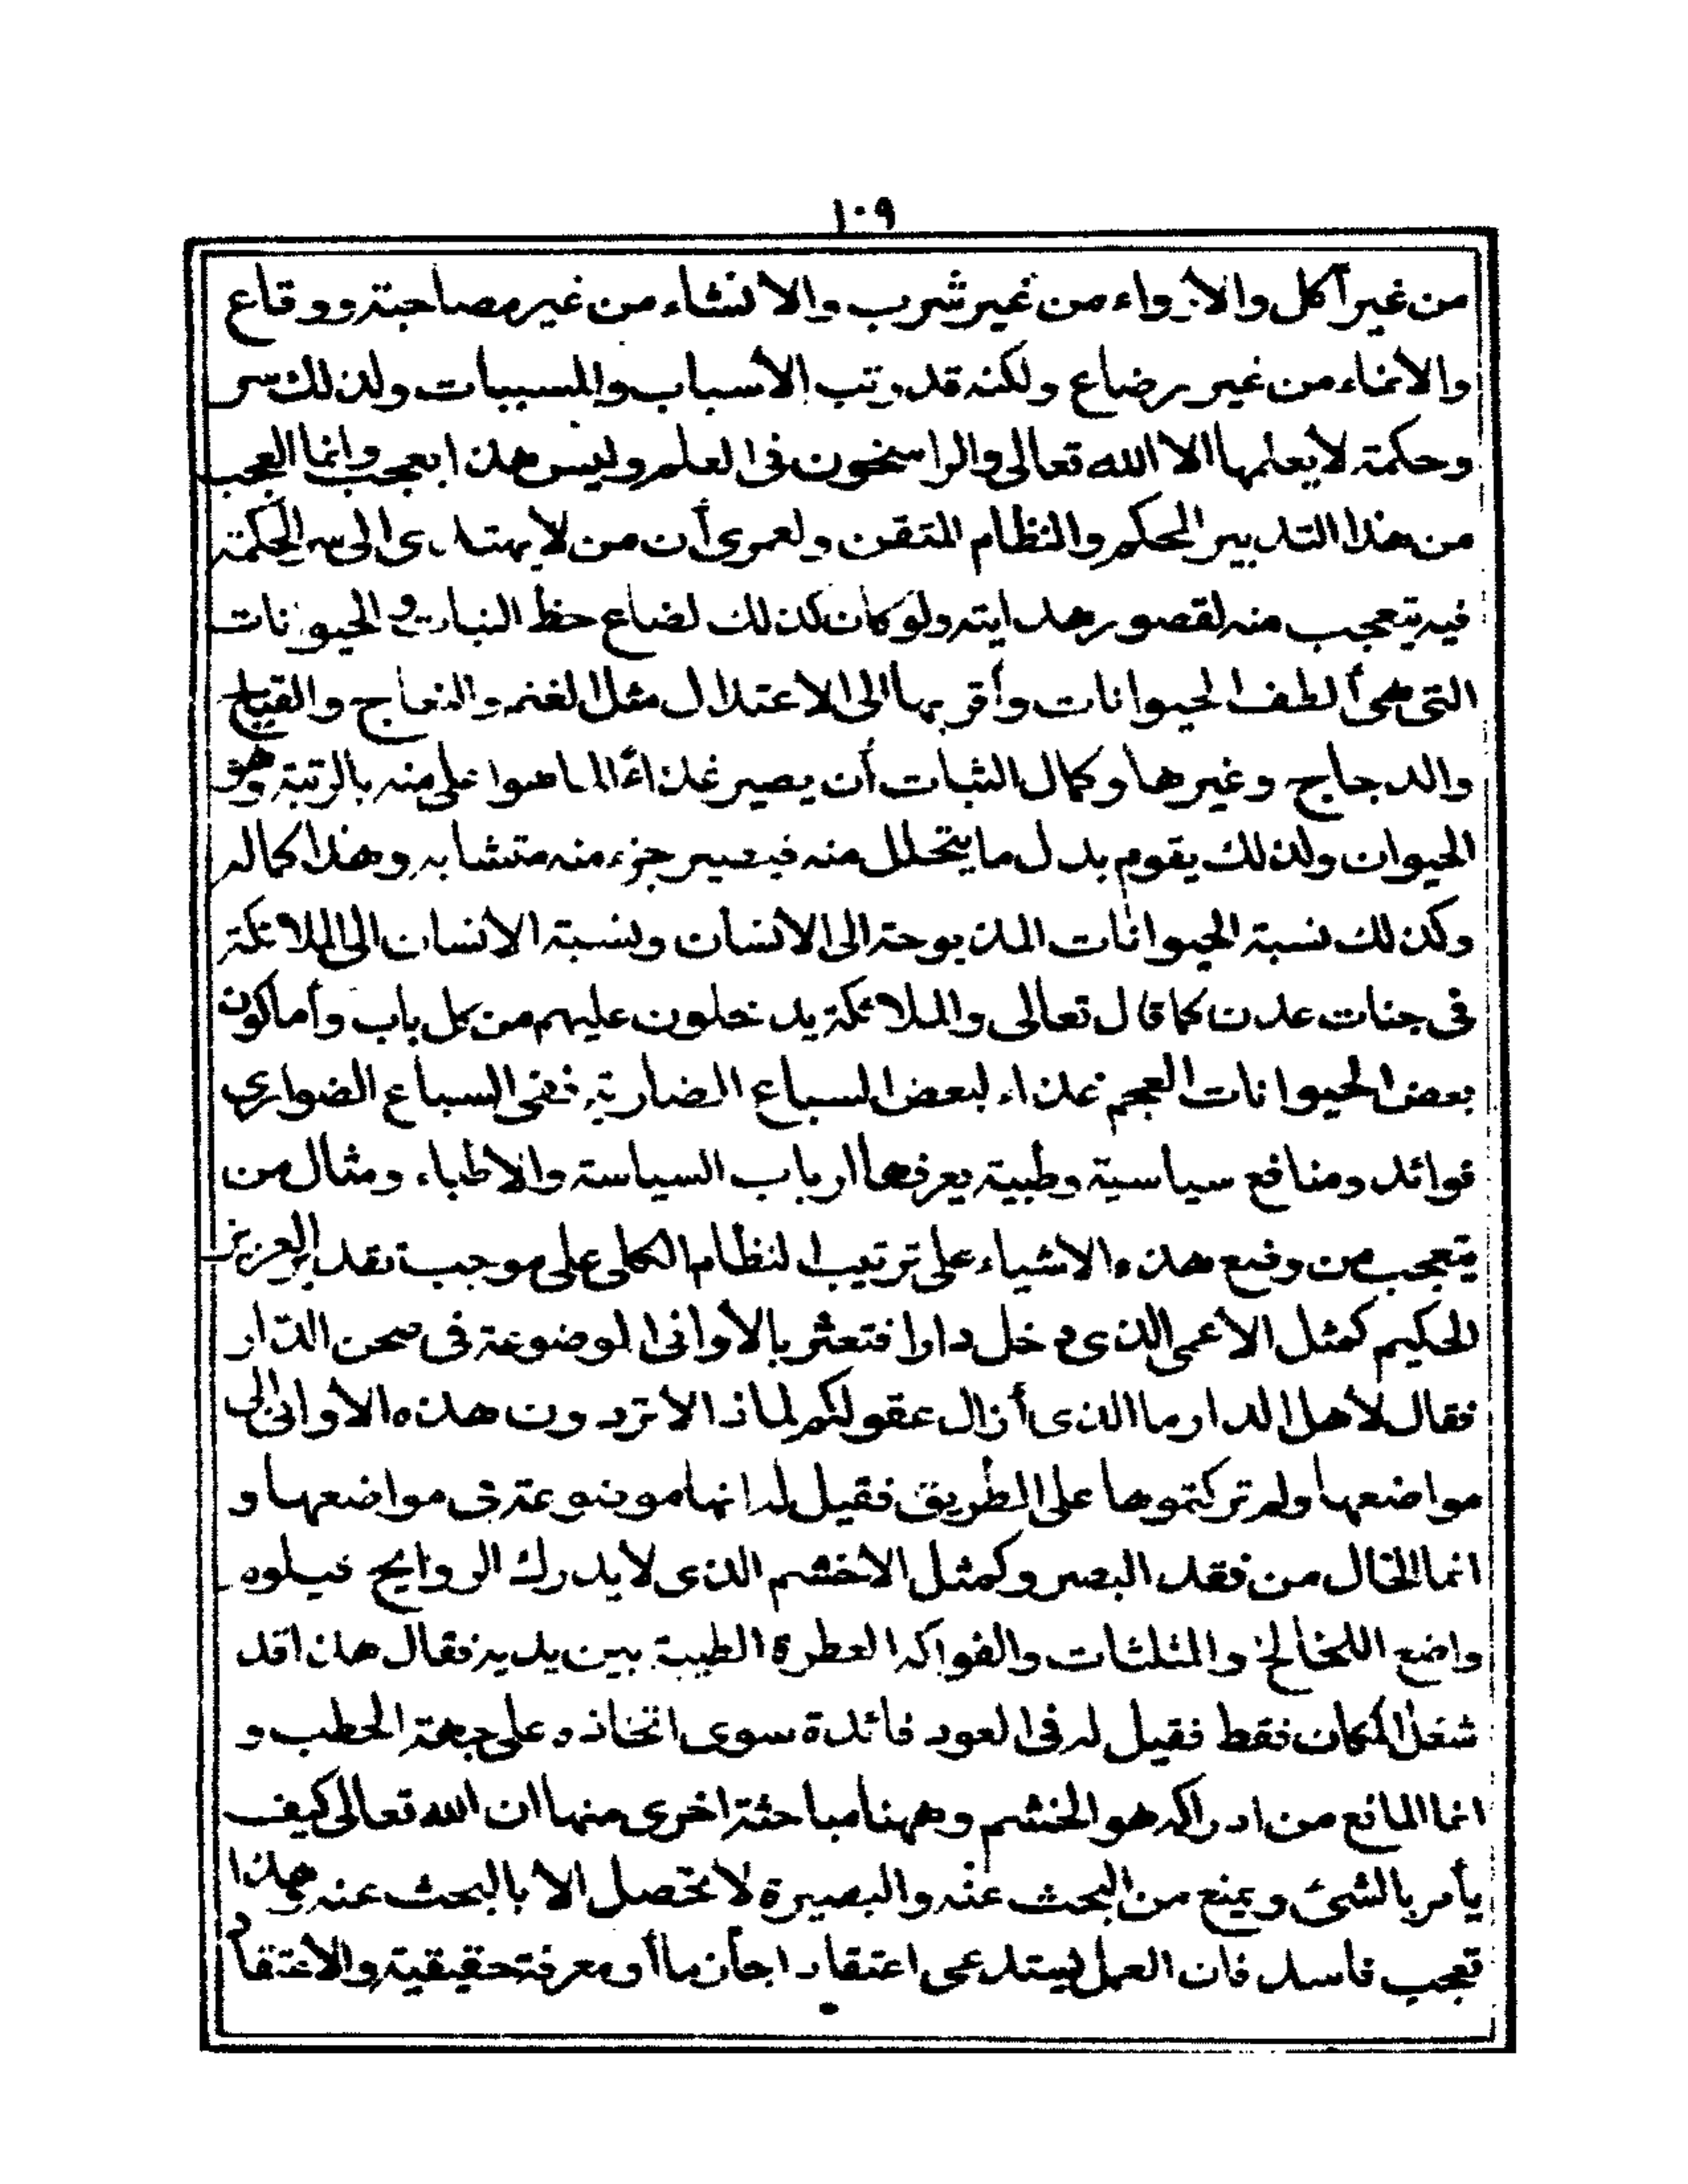 ١٠٩
من غير أكل والأرواء من غير شرب والانشاء من غير مصاحبة ووقاع
والأنماء من غير رضاع ولكنه قد رتب الأسباب والمسببات ولذلك سر
وحكمة لا يعلمها الا الله تعالى والراسخون فى العلم وليس هذا بعجب وانما العجب
من هذا التدبير المحكم والنظام المتقن ولعمرى أن من لا يهتدى الى سر الحكمة
فيه يتعجب منه لقصور هدايته ولو كان كذلك لضاع حظ النبات و الحيوانات
التى هى ألطف الحيوانات وأقربها الى الاعتدال مثل الغنم والنعاج والقباج
والدجاج وغيرها وكمال النبات أن يصير غذاءً لما هو اعلى منه بالرتبة وهو
الحيوان ولذلك يقوم بدل ما يتحلل منه فيصير جزء منه متشابه وهذا كماله
وكذلك نسبة الحيوانات المذبوحة الى الانسان ونسبة الانسان الى الملائكة
فى جنات عدن كما قال تعالى والملائكة يدخلون عليهم من كل باب وأما كون
بعض الحيوانات العجم غذاء لبعض السباع الضارية ففى السباع الضوارى
فوائد ومنافع سياسية وطبية يعرفها ارباب السياسة والاطباء ومثال من
يتعجب من وضع هذه الاشياء على ترتيب النظام الكلى على موجب تقدير العزيز
الحكيم كمثل الأعمى الذى دخل دارا فتعثر بالأوانى الموضوعة فى صحن الدار
فقال لأهل الدار ما الذى أزال عقولكم لماذا لا تردون هذه الأوانى الى
مواضعها ولم تركتموها على الطريق فقيل له انها موضوعة فى مواضعها و
انما الخال من فقد البصر وكمثل الأخشم الذى لا يدرك الروايح فيلوه
واضع اللخالخ والمثلثات والفواكه العطرة الطيبة بين يديه فقال هذا قد
شغل المكان فقط فقيل له فى العود فائدة سوى اتخاذه على جهة الحطب و
انما المانع من ادراكه هو الخشم وههنا مباحثة اخرى منها ان الله تعالى كيف
يأمر بالشئ ويمنع من البحث عنه والبصيرة لا تحصل الا بالبحث عنه وهذا
تعجب فاسد فان العمل يستدعى اعتقادا جازما أو معرفة حقيقية والاعتقاد